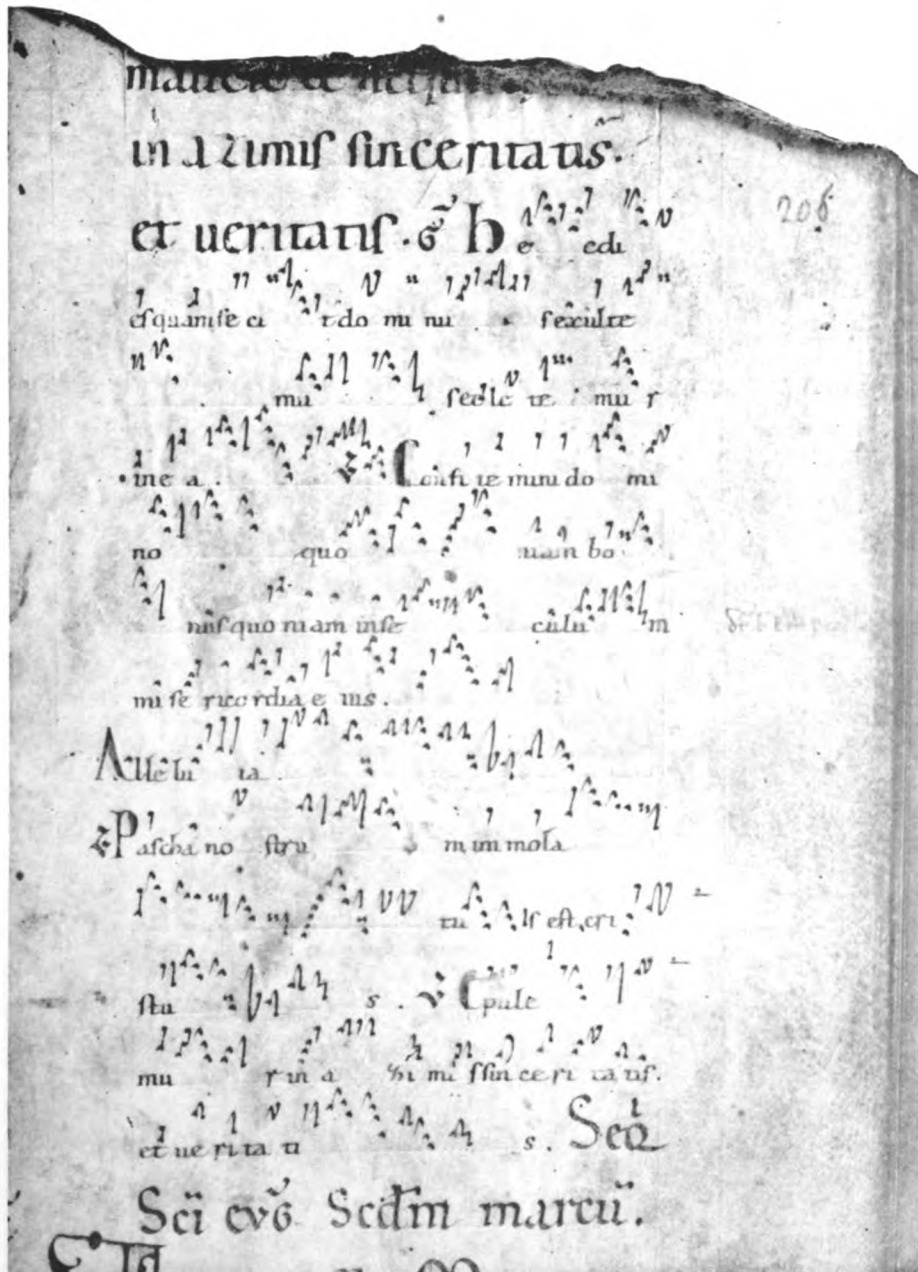 in azimis sinceritatis.
et ueritatis. G H e edi
es quam fe ci t do mi nu s exulte
mu s et le te mu r
in e a. Confi te mini do mi
no quo niam bo
nus quo niam in se culu m
mi se ricordia e ius.
Alle lu ia
Pascha no stru m im mola
tu s est, cri
stu s. Epule
mu r in a zi mi s sin ce ri ta tis.
et ue ri ta ti s. Seq
Sci evg Scdm marcu.
206